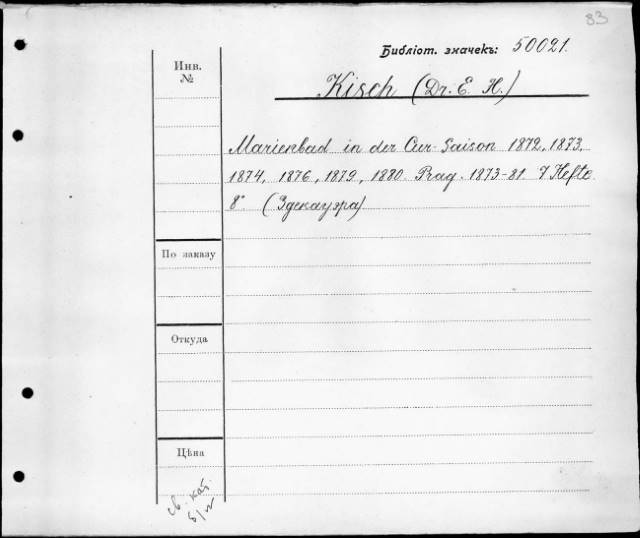 83
Библіот. значекъ: 50021.
Инв.
№
Kisch (Dr. E. H.)
Marienbad in der Cur-Saison 1872, 1873,
1874, 1876, 1879, 1880. Prag. 1873-81. 7 Hefte.
8°. (Здекауэра)
По заказу
Откуда
Цѣна
св. кат.
б/н